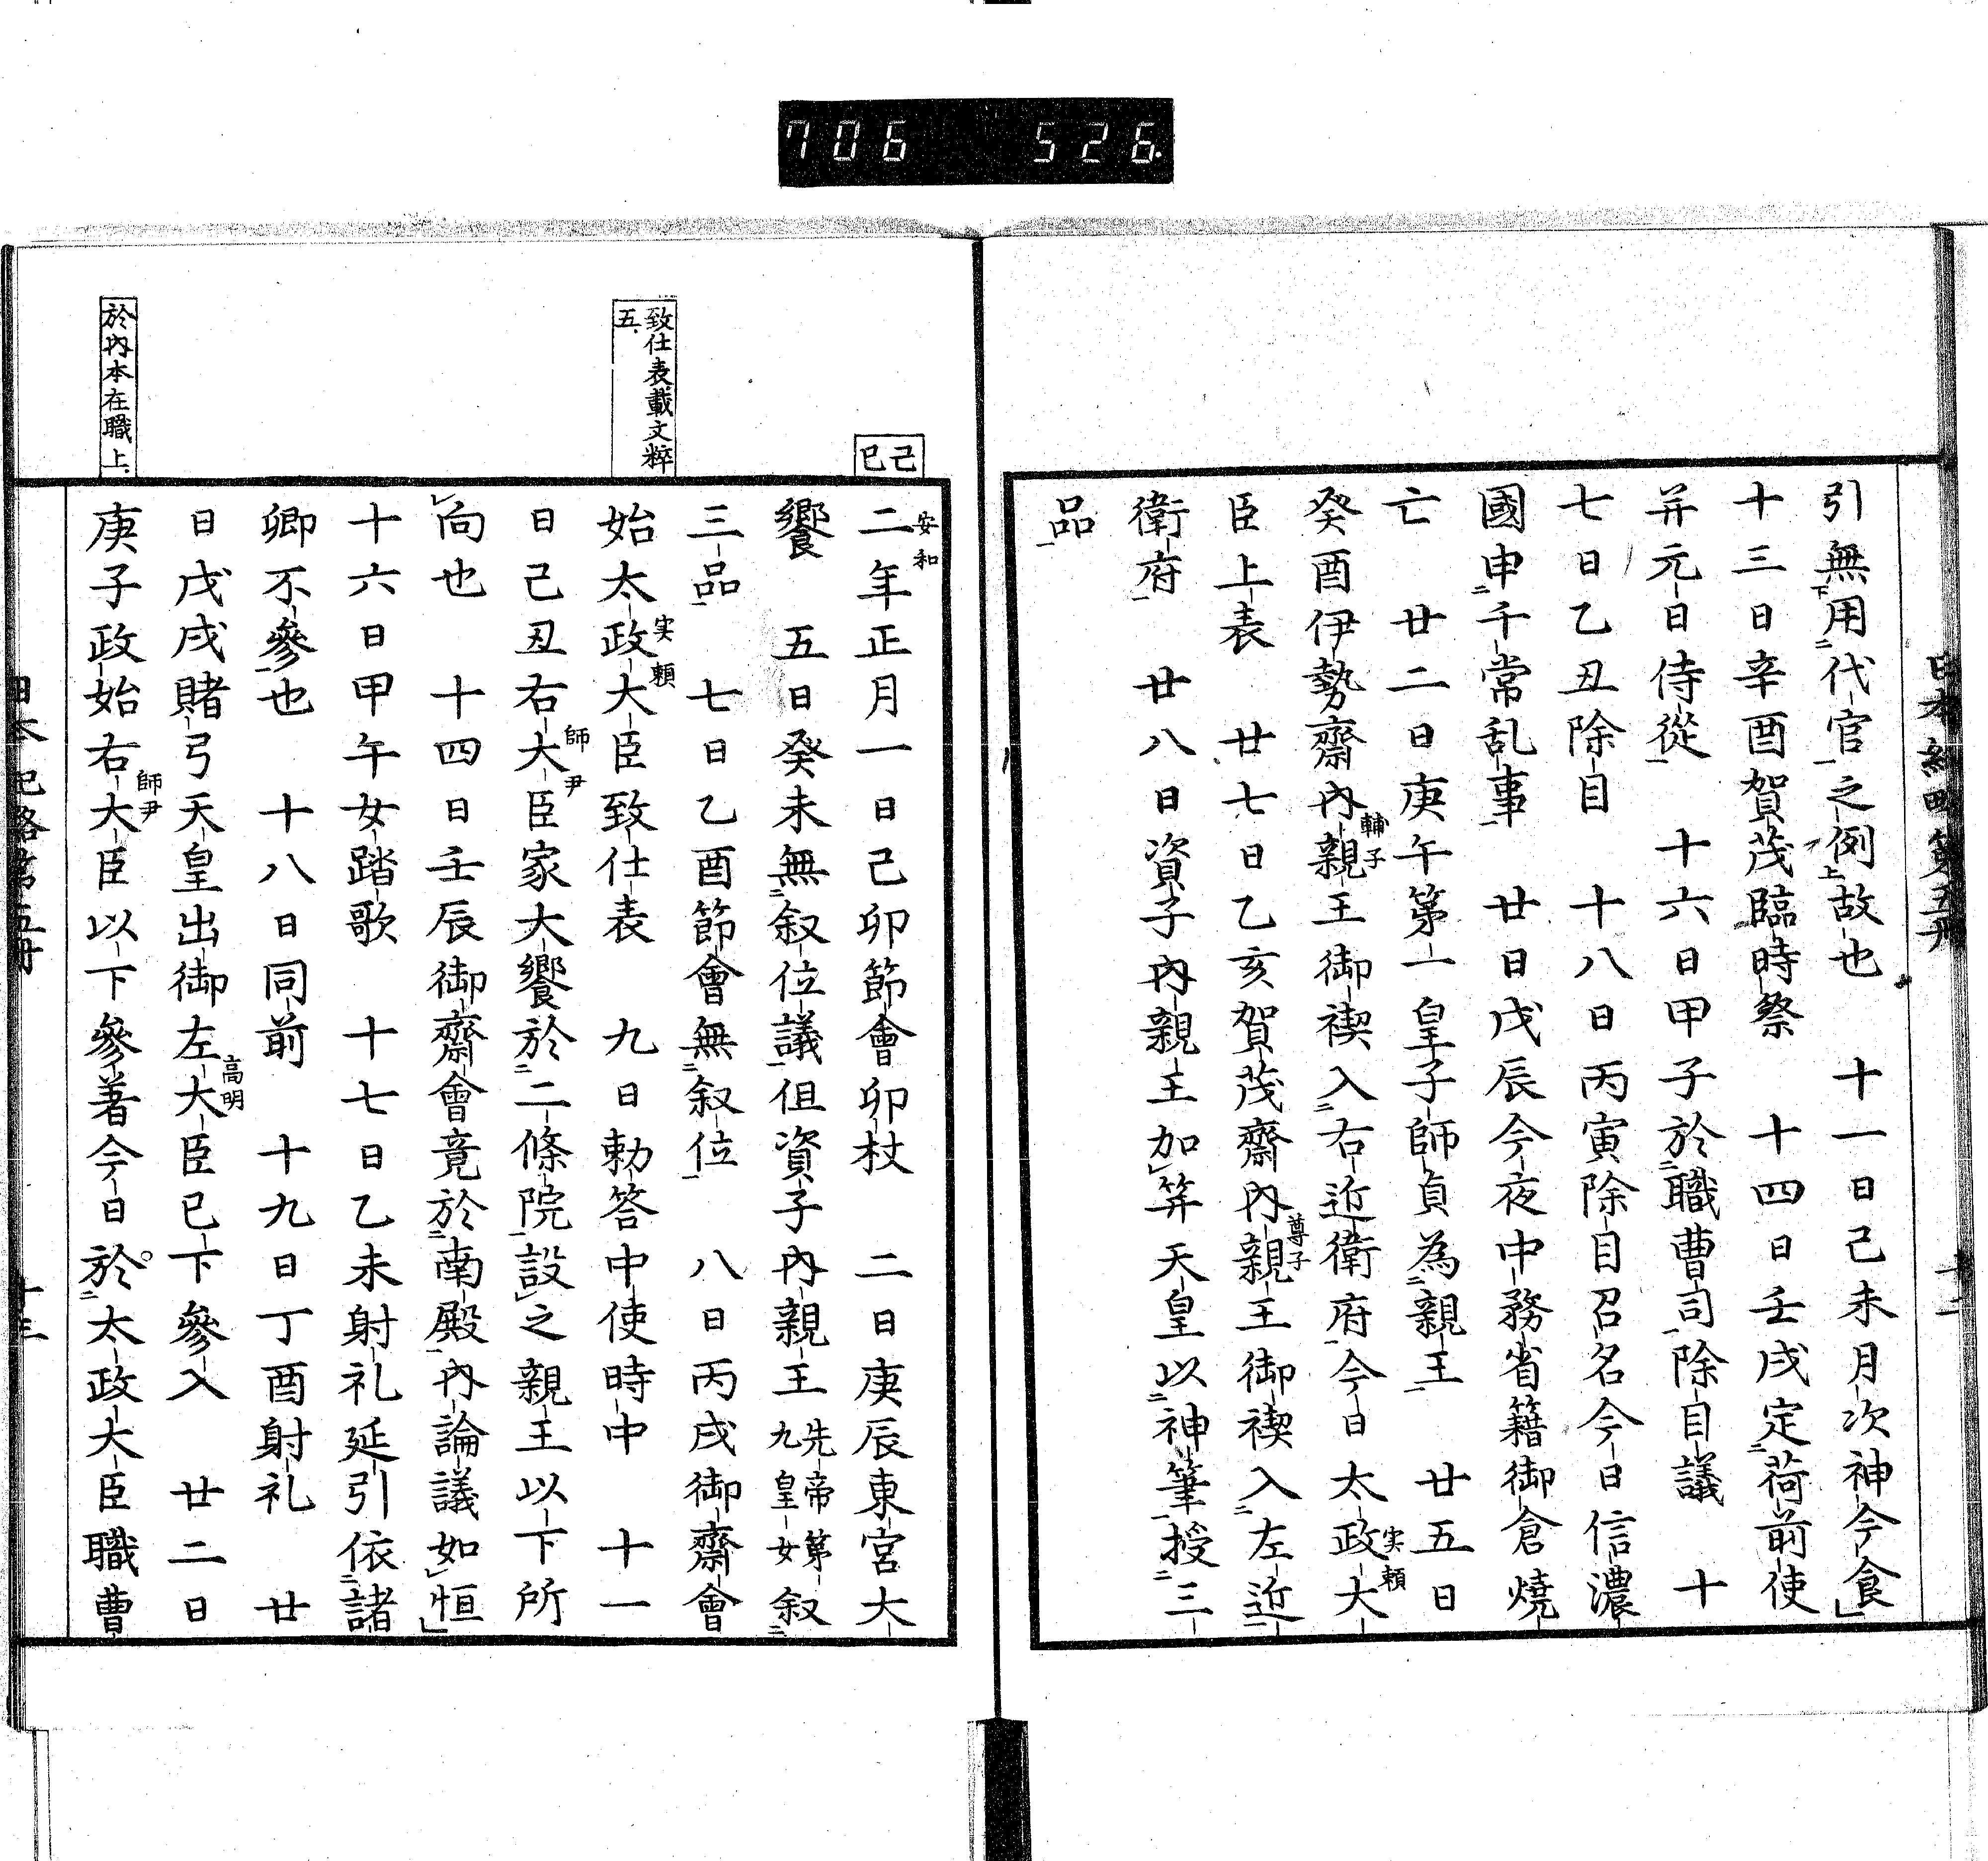 706 526
引無用代官之例故也　十一日己未月次神今食
十三日辛酉賀茂臨時祭　十四日壬戌定荷前使
并元日侍從　十六日甲子於職曹司除目議　十
七日乙丑除目　十八日丙寅除目召名今日信濃
國申千常乱事　廿日戊辰今夜中務省籍御倉燒
亡　廿二日庚午第一皇子師貞為親王　廿五日
癸酉伊勢齋內親王御禊入右近衛府今日太政大
輔子
実頼
臣上表　廿七日乙亥賀茂齋內親王御禊入左近
尊子
衛府　廿八日資子內親王加笄天皇以神筆授三
品
己巳
安和
二年正月一日己卯節會卯杖　二日庚辰東宮大
饗　五日癸未無叙位議但資子內親王先帝第九皇女叙
三品　七日乙酉節會無叙位　八日丙戌御齋會
致仕表載文粹
五
始太政大臣致仕表　九日勅答中使時中　十一
実頼
日己丑右大臣家大饗於二條院設之親王以下所
師尹
向也　十四日壬辰御齋會竟於南殿內論議如恒
十六日甲午女踏歌　十七日乙未射礼延引依諸
卿不參也　十八日同前　十九日丁酉射礼　廿
日戊戌賭弓天皇出御左大臣已下參入　廿二日
高明
於內本在職上
庚子政始右大臣以下參著今日於太政大臣職曹
師尹
日本紀略第五冊　十三